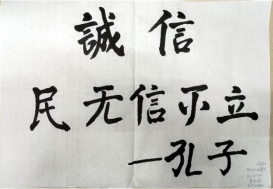 誠信
民无信不立
一孔子